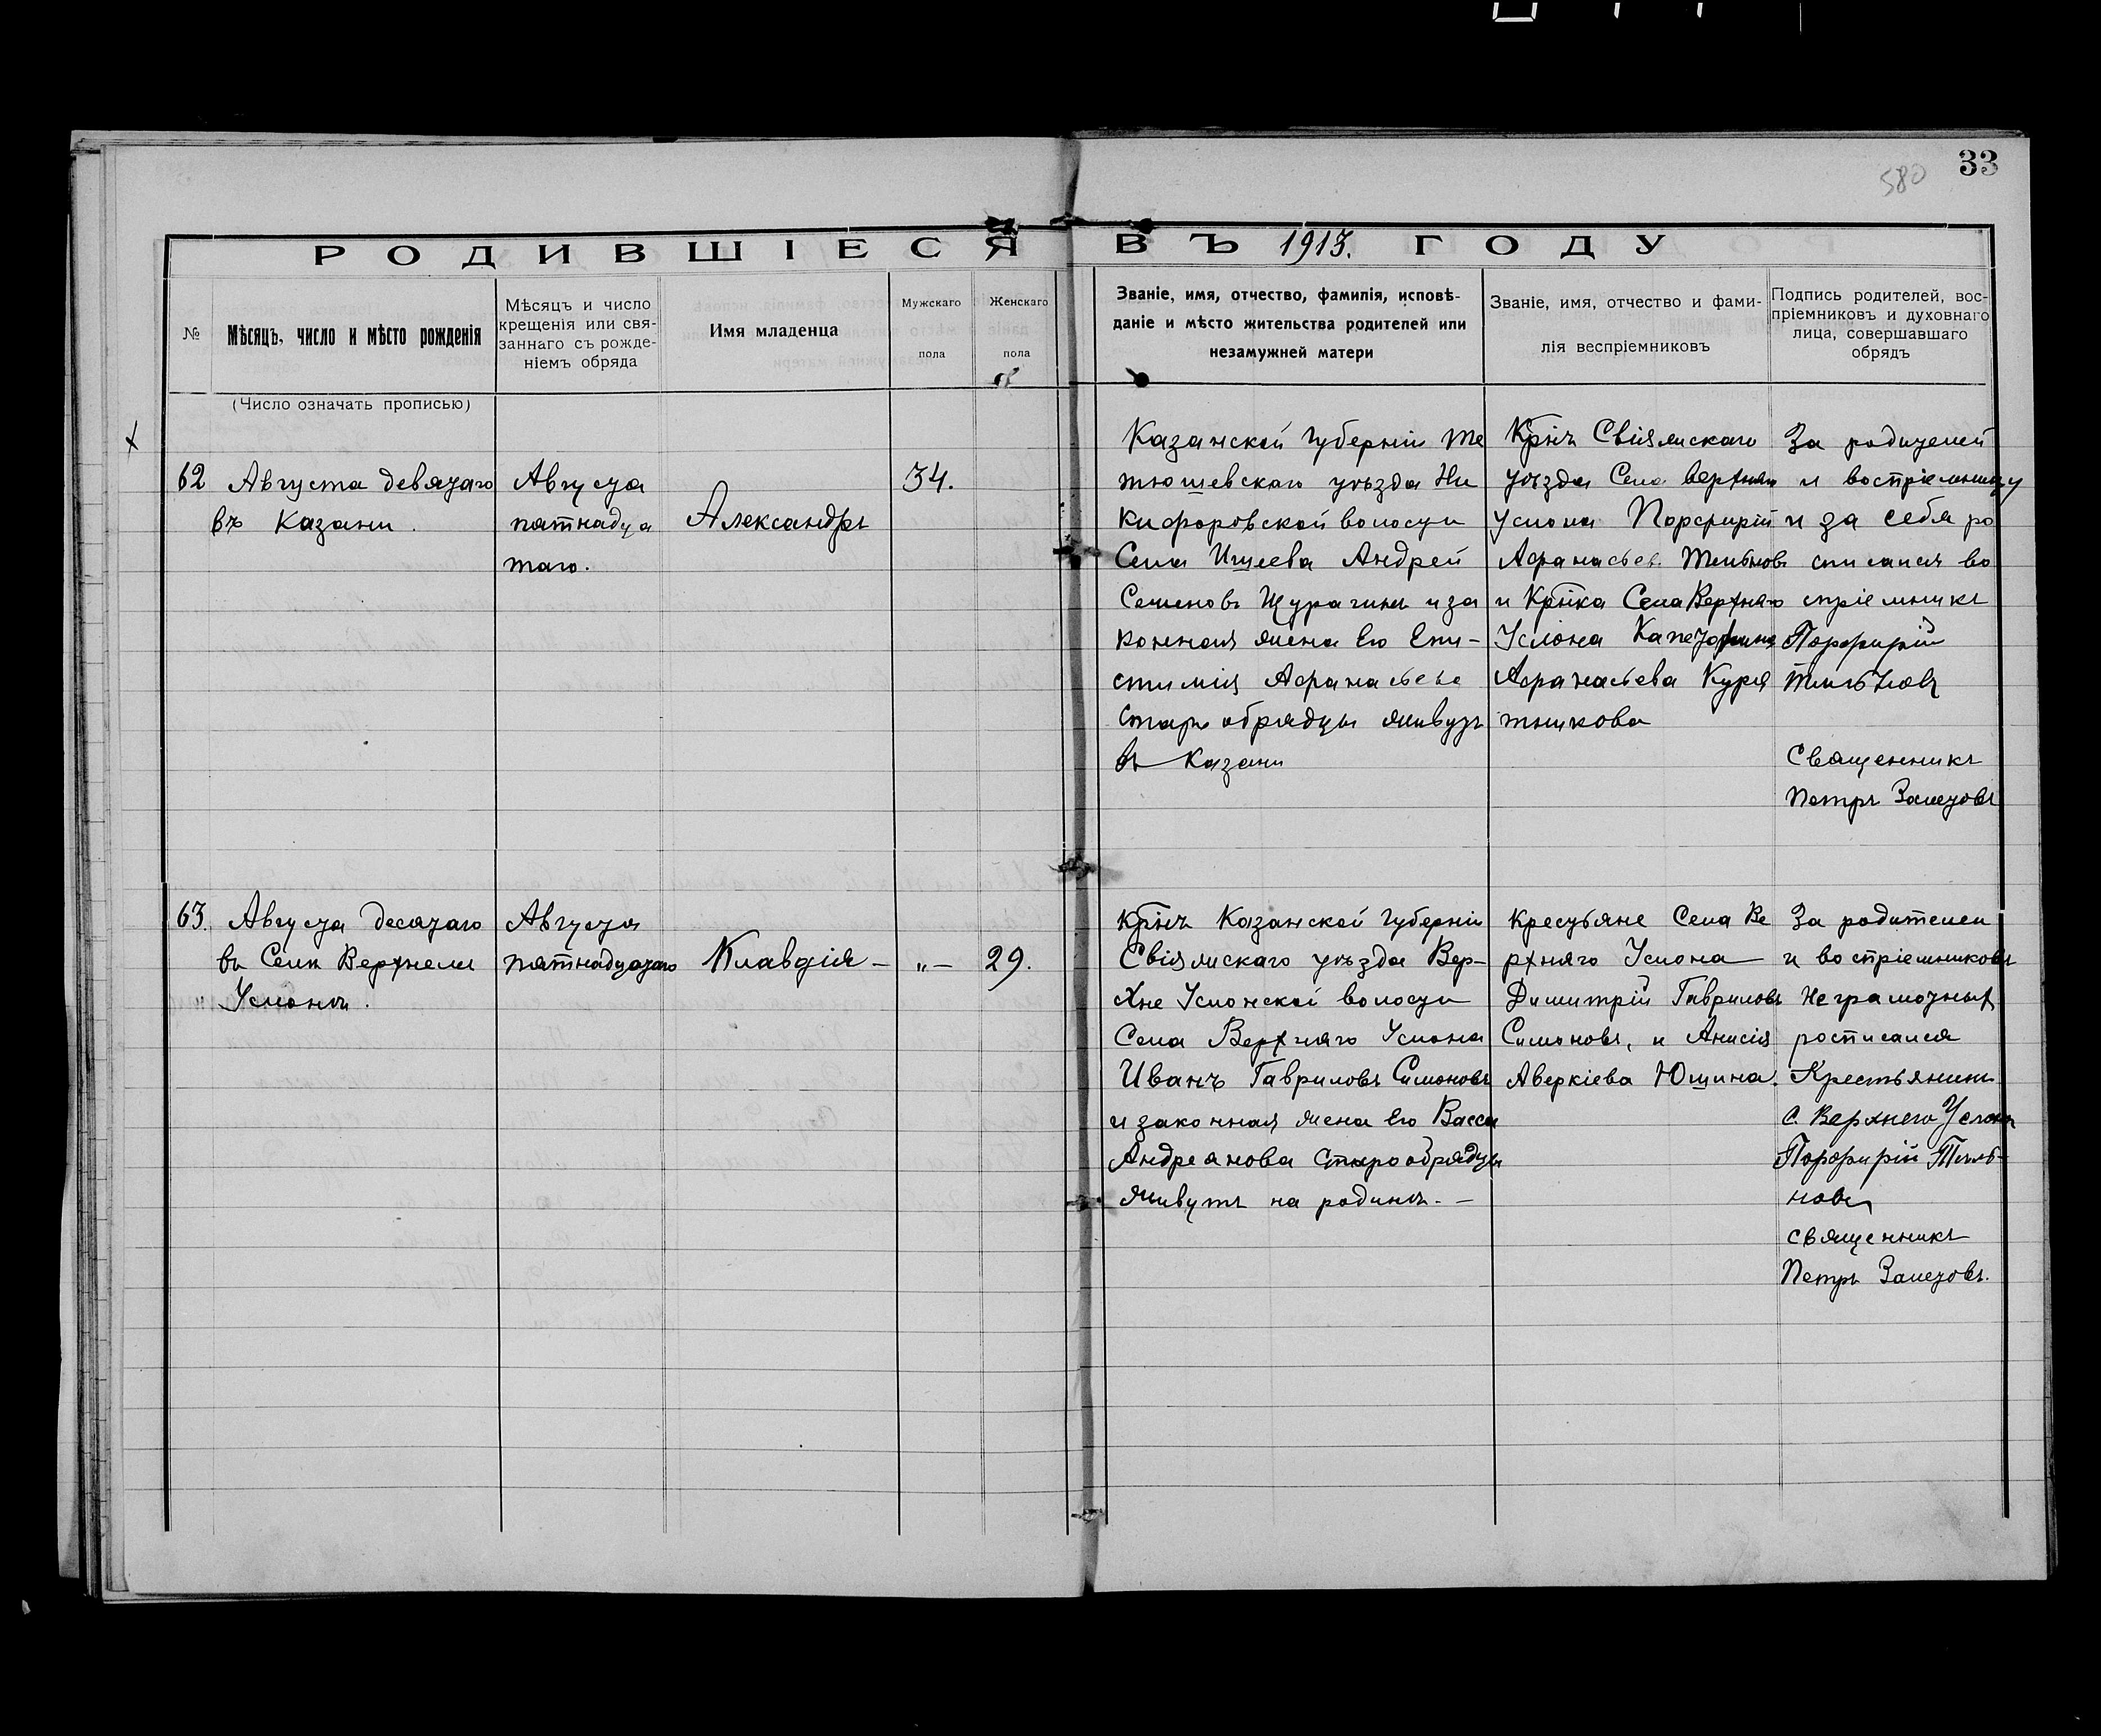 33
580
РОДИВШІЕСЯ ВЪ 1913. ГОДУ
№
Мѣсяцъ, число и мѣсто рожденія
(Число означать прописью)
Мѣсяцъ и число
крещенія или свя-
заннаго съ рожде-
ніемъ обряда
Имя младенца
Мужскаго
пола
Женскаго
пола
Званіе, имя, отчество, фамилія, исповѣ-
даніе и мѣсто жительства родителей или
незамужней матери
Званіе, имя, отчество и фами-
лія веспріемниковъ
Подпись родителей, вос-
пріемниковъ и духовнаго
лица, совершавшаго
обрядъ
62
Августа девятаго
въ Казани.
Августа
пятнадца
таго.
Александръ
34.
Казанской губерніи Те
тюшевскаго уѣзда Ни
кифоровской волости
Села Ишеева Андрей
Семеновъ Щурагинъ и за
конная жена его Епи-
стимія Афанасьева
Старообрядцы живутъ
въ Казани
Крнъ Свіяжскаго
уѣзда Села Верхняго
Услона Порфирій
Афанасьев. Тельновъ
и Крнка Села Верхняго
Услона Капетолина
Афанасьева Куря
тникова
За родителей
и воспріемницу
и за себя ро
списался во
спріемникъ
Порфирій
Тельновъ
Священникъ
Петръ Залетовъ
63.
Августа десятаго
въ Селѣ Верхнемъ
Услонѣ.
Августа
пятнадцатаго
Клавдія –
„ –
29.
Крнъ Казанской губерніи
Свіяжскаго уѣзда Вер-
хне Услонской волости
Села Верхняго Услона
Иванъ Гавриловъ Симоновъ
и законная жена его Васса
Андреянова Старообрядцы
живутъ на родинѣ. –
Крестьяне Села Ве
рхняго Услона
Димитрій Гавриловъ
Симоновъ, и Анисія
Аверкіева Юшина.
За родителей
и воспріемниковъ
неграмотных
росписался
Крестьянинъ
с. Верхнего Услона
Порфирій Тель-
новъ
священникъ
Петръ Залетовъ.